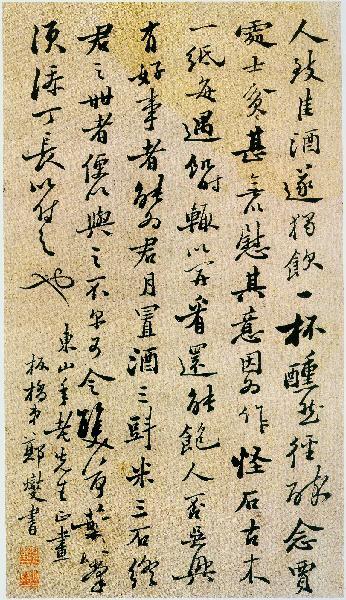 人致佳酒遂獨飲一杯醺然徑醉念賈
處士貧甚無以慰其意因為作怪石古木
一紙每遇飢輒以開看還能飽人若吳興
有好事者能為君月置酒三斗米三石終
君之世者便以與之不尔可令雙荷葉掌
須添丁長以付之也
東山年老先生正畫
板橋弟鄭燮書